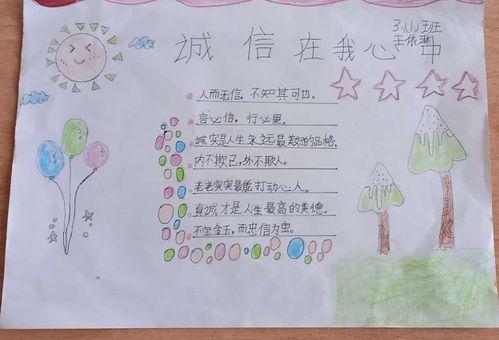 诚信在我心中
3.(1)班
王依琳
人而无信，不知其可也。
言必信，行必果。
诚实是人生永远最美好的品格。
内不欺己，外不欺人。
老老实实最能打动心人。
真诚才是人生最高的美德。
不宝金玉，而忠信为宝。